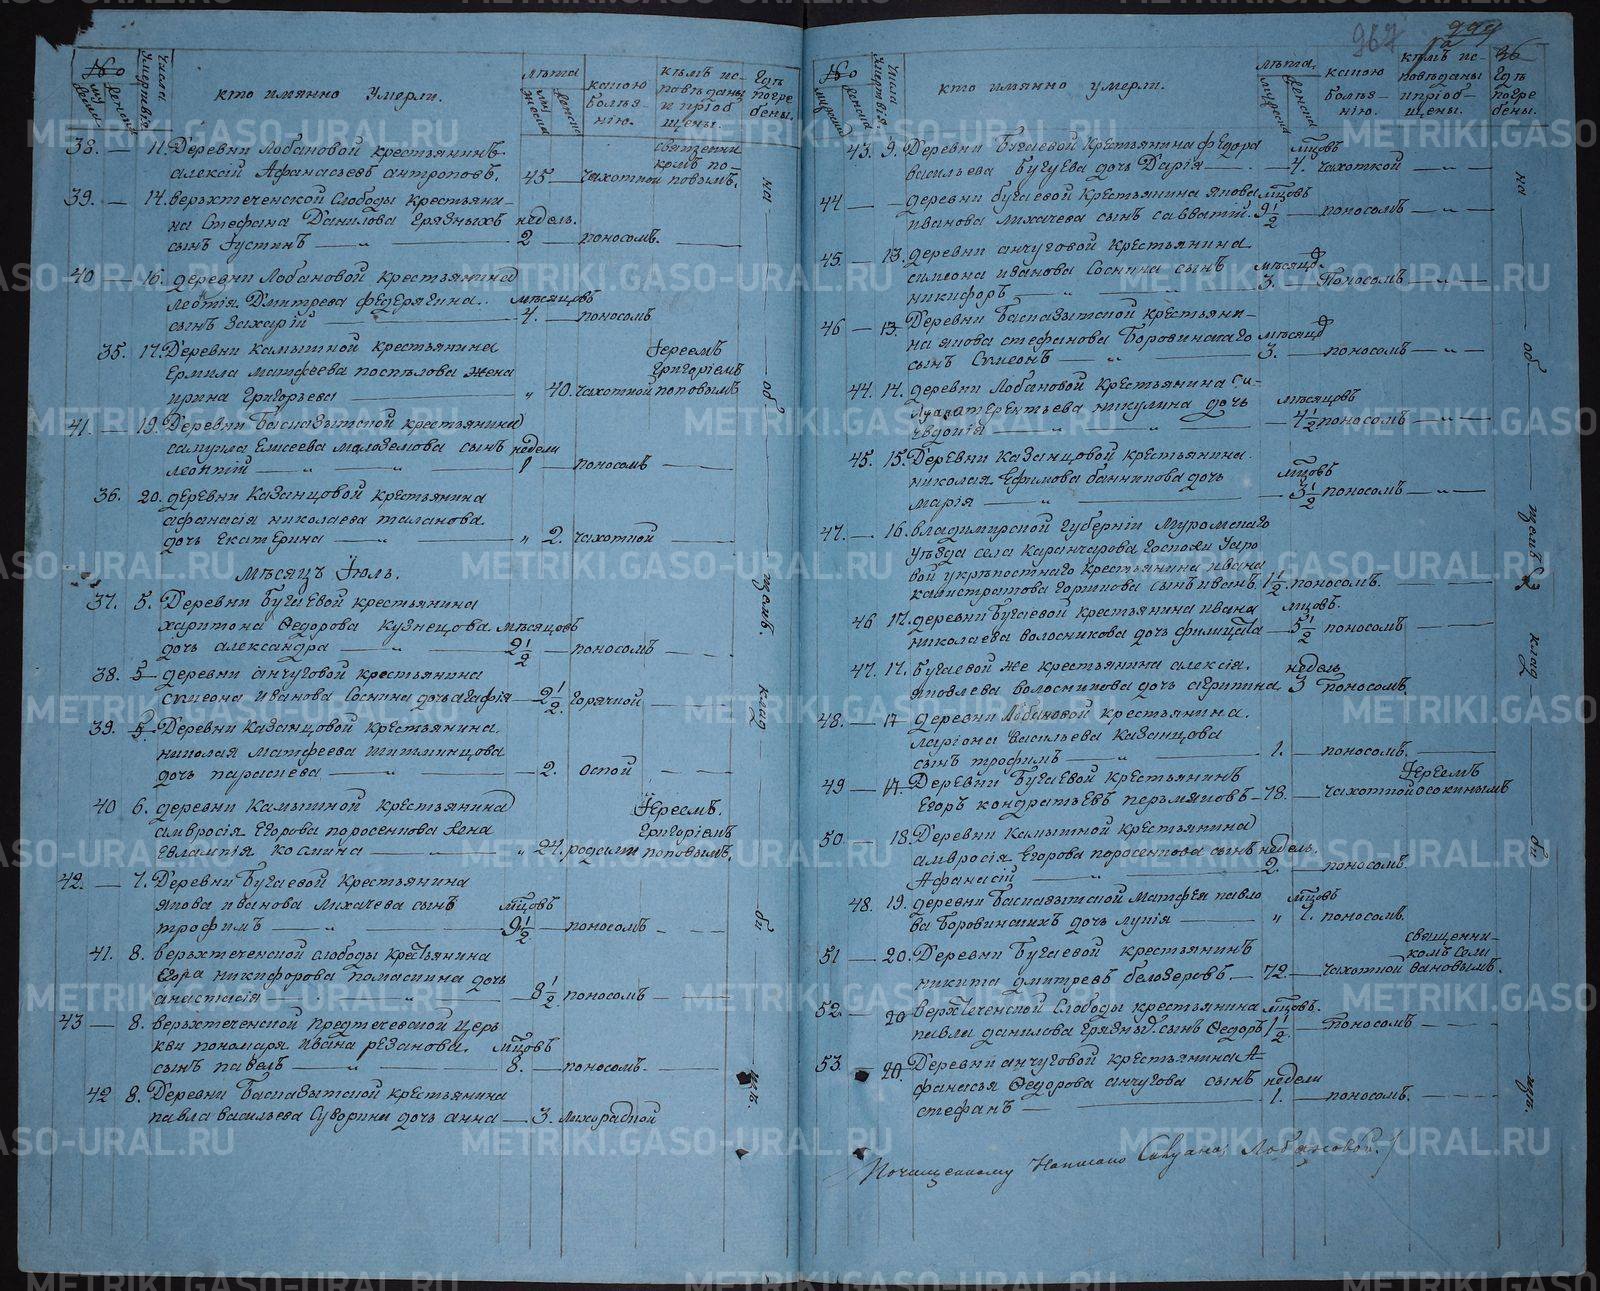 №о
мужеска
женска
Числа Умертвія
кто имянно Умерли.
лѣта
мужеска
женска
какою болѣз-
нію.
кѣмъ ис-
повѣданы
и пріоб-
щены.
Гдѣ
погре
бены.
38. — 11. Деревни Лобановой крестьянинъ священни
алексій Афанасьевъ антроповъ. 45 — чахоткой комъ по-
повымъ.
39. — 14. верьхтеченской Слободы крестьяни-
на Стефана Данилова Грязныхъ недель.
сынъ Іустинъ — „ — 2 — поносомъ.
40 — 16. деревни Лобановой крестьянина
леонтія Дмитрева федерягина. мѣсяцовъ
сынъ Захарій — 4. — поносомъ
35. 17. Деревни камышной крестьянина Іереемъ
Ермила матфеева поспѣлова жена Григоріемъ
ирина Григорьева — „ 40. чахоткой поповымъ
41. — 19. Деревни Басказыкской крестьянина
самуила Елисеева малоземова сынъ недели
леонтій — „ — „ 1 — поносомъ —
36. 20. деревни Казанцовой крестьянина
афанасія николаева таланова
дочь Екатерина — „ — „ 2. чахоткой
Мѣсяцъ Іюль.
37. 5. Деревни бугаевой крестьянина
харитона Ѳедорова кузнецова мѣсяцовъ
дочь александра — „ — 2 1/2 — поносомъ
38. 5 — деревни анчуговой крестьянина
симеона иванова Соснина дочь агафія — 2 1/2. Горячкой
39. 5. Деревни Казанцовой крестьянина
николая матфеева
дочь параскева — „ — 2. оспой
40 6. деревни камышной крестьянина Іереемъ.
амвросія Егорова поросенкова жена Григоріемъ
Евлампія козмина — „ 24. родами поповымъ.
42. — 7. Деревни Бугаевой крестьянина
якова иванова лихачева сынъ мцовъ
трофимъ — „ — 9 1/2 — поносомъ — —
41. 8. верьхтеченской слободы крестьянина
Егора никифорова дочь
анастасія — „ — 8 1/2 — поносомъ —
43 — 8. верьхтеченской предтечевской цер
кви пономаря ивана резанова. мцовъ
сынъ павелъ — „ — 8. — поносомъ —
42 8. Деревни басказыкской крестьянина
павла васильева Суворина дочь анна — 3. лихорадкой
на об щемъ клад би щѣ.
967
994
№о
мужеска
женска
Числа Умертвія.
кто имянно умерли.
лѣта.
мужеска
женска
какою
болѣз-
нію.
кѣмъ ис-
повѣданы
и пріоб-
щены.
Гдѣ
погре
бены.
43. 9. Деревни Бугаевой крестьянина фѣдора мцовъ
васильева бугуева дочь Дарія — 4. чахоткой
44 — — деревни бугаевой крестьянина якова мцовъ
иванова лихачева сынъ савватій. 9 1/2 — поносомъ — „ —
45. — 13. деревни анчуговой крестьянина
симеона иванова Соснина сынъ мѣсяцо.
никифоръ — „ — „ 3. — Поносомъ — „ —
46 — 13. Деревни басказыкской крестьяни-
на якова стефанова боровинскаго мѣсяцо
сынъ Симеонъ — „ — 3. — поносомъ — „ —
44. 14. деревни Лобановой крестьянина си-
терентьева никулина дочь мѣсяцовъ
Евдокія — „ — „ — 4 1/2 поносомъ — „ —
45. 15. Деревни казанцовой крестьянина.
николая Ефимова банникова дочь мцовъ
марія — „ — 3 1/2 поносомъ — „ —
47. — 16. владимирской губерніи муромскаго
уѣзда села карачарова госпожи Уваро
вой укрѣпостнаго крестьянина ивана
калистратова горшкова сынъ иванъ 1 1/2. поносомъ. —
46 17. деревни бугаевой крестьянина ивана мцовъ.
николаева волосникова дочь филицата — 5 1/2 поносомъ —
47. 17. бугаевой же крестьянина алексія. недель
яковлева волосникова дочь агрипина 3 поносомъ.
48. — 17 деревни лобановой крестьянина.
ларіона васильева казанцова
сынъ трофимъ — „ — 1. — поносомъ. —
49 — 17 Деревни бугаевой крестьянинъ Іереемъ
Егоръ кондратьевъ пермяковъ — 78. — чахоткой осокинымъ
50. — 18. Деревни камышной крестьянина
амвросія Егорова поросенкова сынъ недель.
Афанасій — „ — 2. — поносомъ.
48. 19. деревни басказыкской матфея павло мцовъ
ва боровинскихъ дочь лукія — „ 7. поносомъ.
51 — 20. Деревни бугаевой крестьянинъ священни-
никита дмитревъ белозеровъ. — 72. — чахоткой комъ Соли
вановымъ.
52. — 20 верхтеченской слободы крестьянина мцовъ.
павла данилова грязныхъ сынъ Ѳедоръ 1 1/2. — поносомъ —
53. — 20. Деревни анчуговой крестьянина А-
фанасья Ѳедорова анчугова сынъ недели
стефанъ — 1. — поносомъ. —
на об щемъ клад би щѣ.